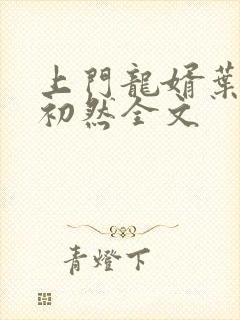 上門龍婿葉
初然全文
青燈下